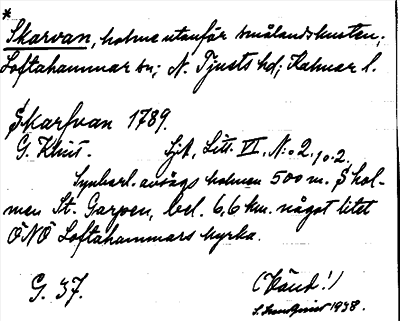 *
Skarvan, holme utanför Smålandskusten;
Loftahammar sn; N. Tjusts hd; Kalmar l.
Skarfvan 1789.
G. Klint. Sjk, Litt. VI, N:o 2.
Synbarl. avsågs holmen 500 m. S hol-
men St. Garpen, bel. 6,6 km. något litet
ÖNÖ Loftahammars kyrka.
G. 37. (Vänd!)
1938.